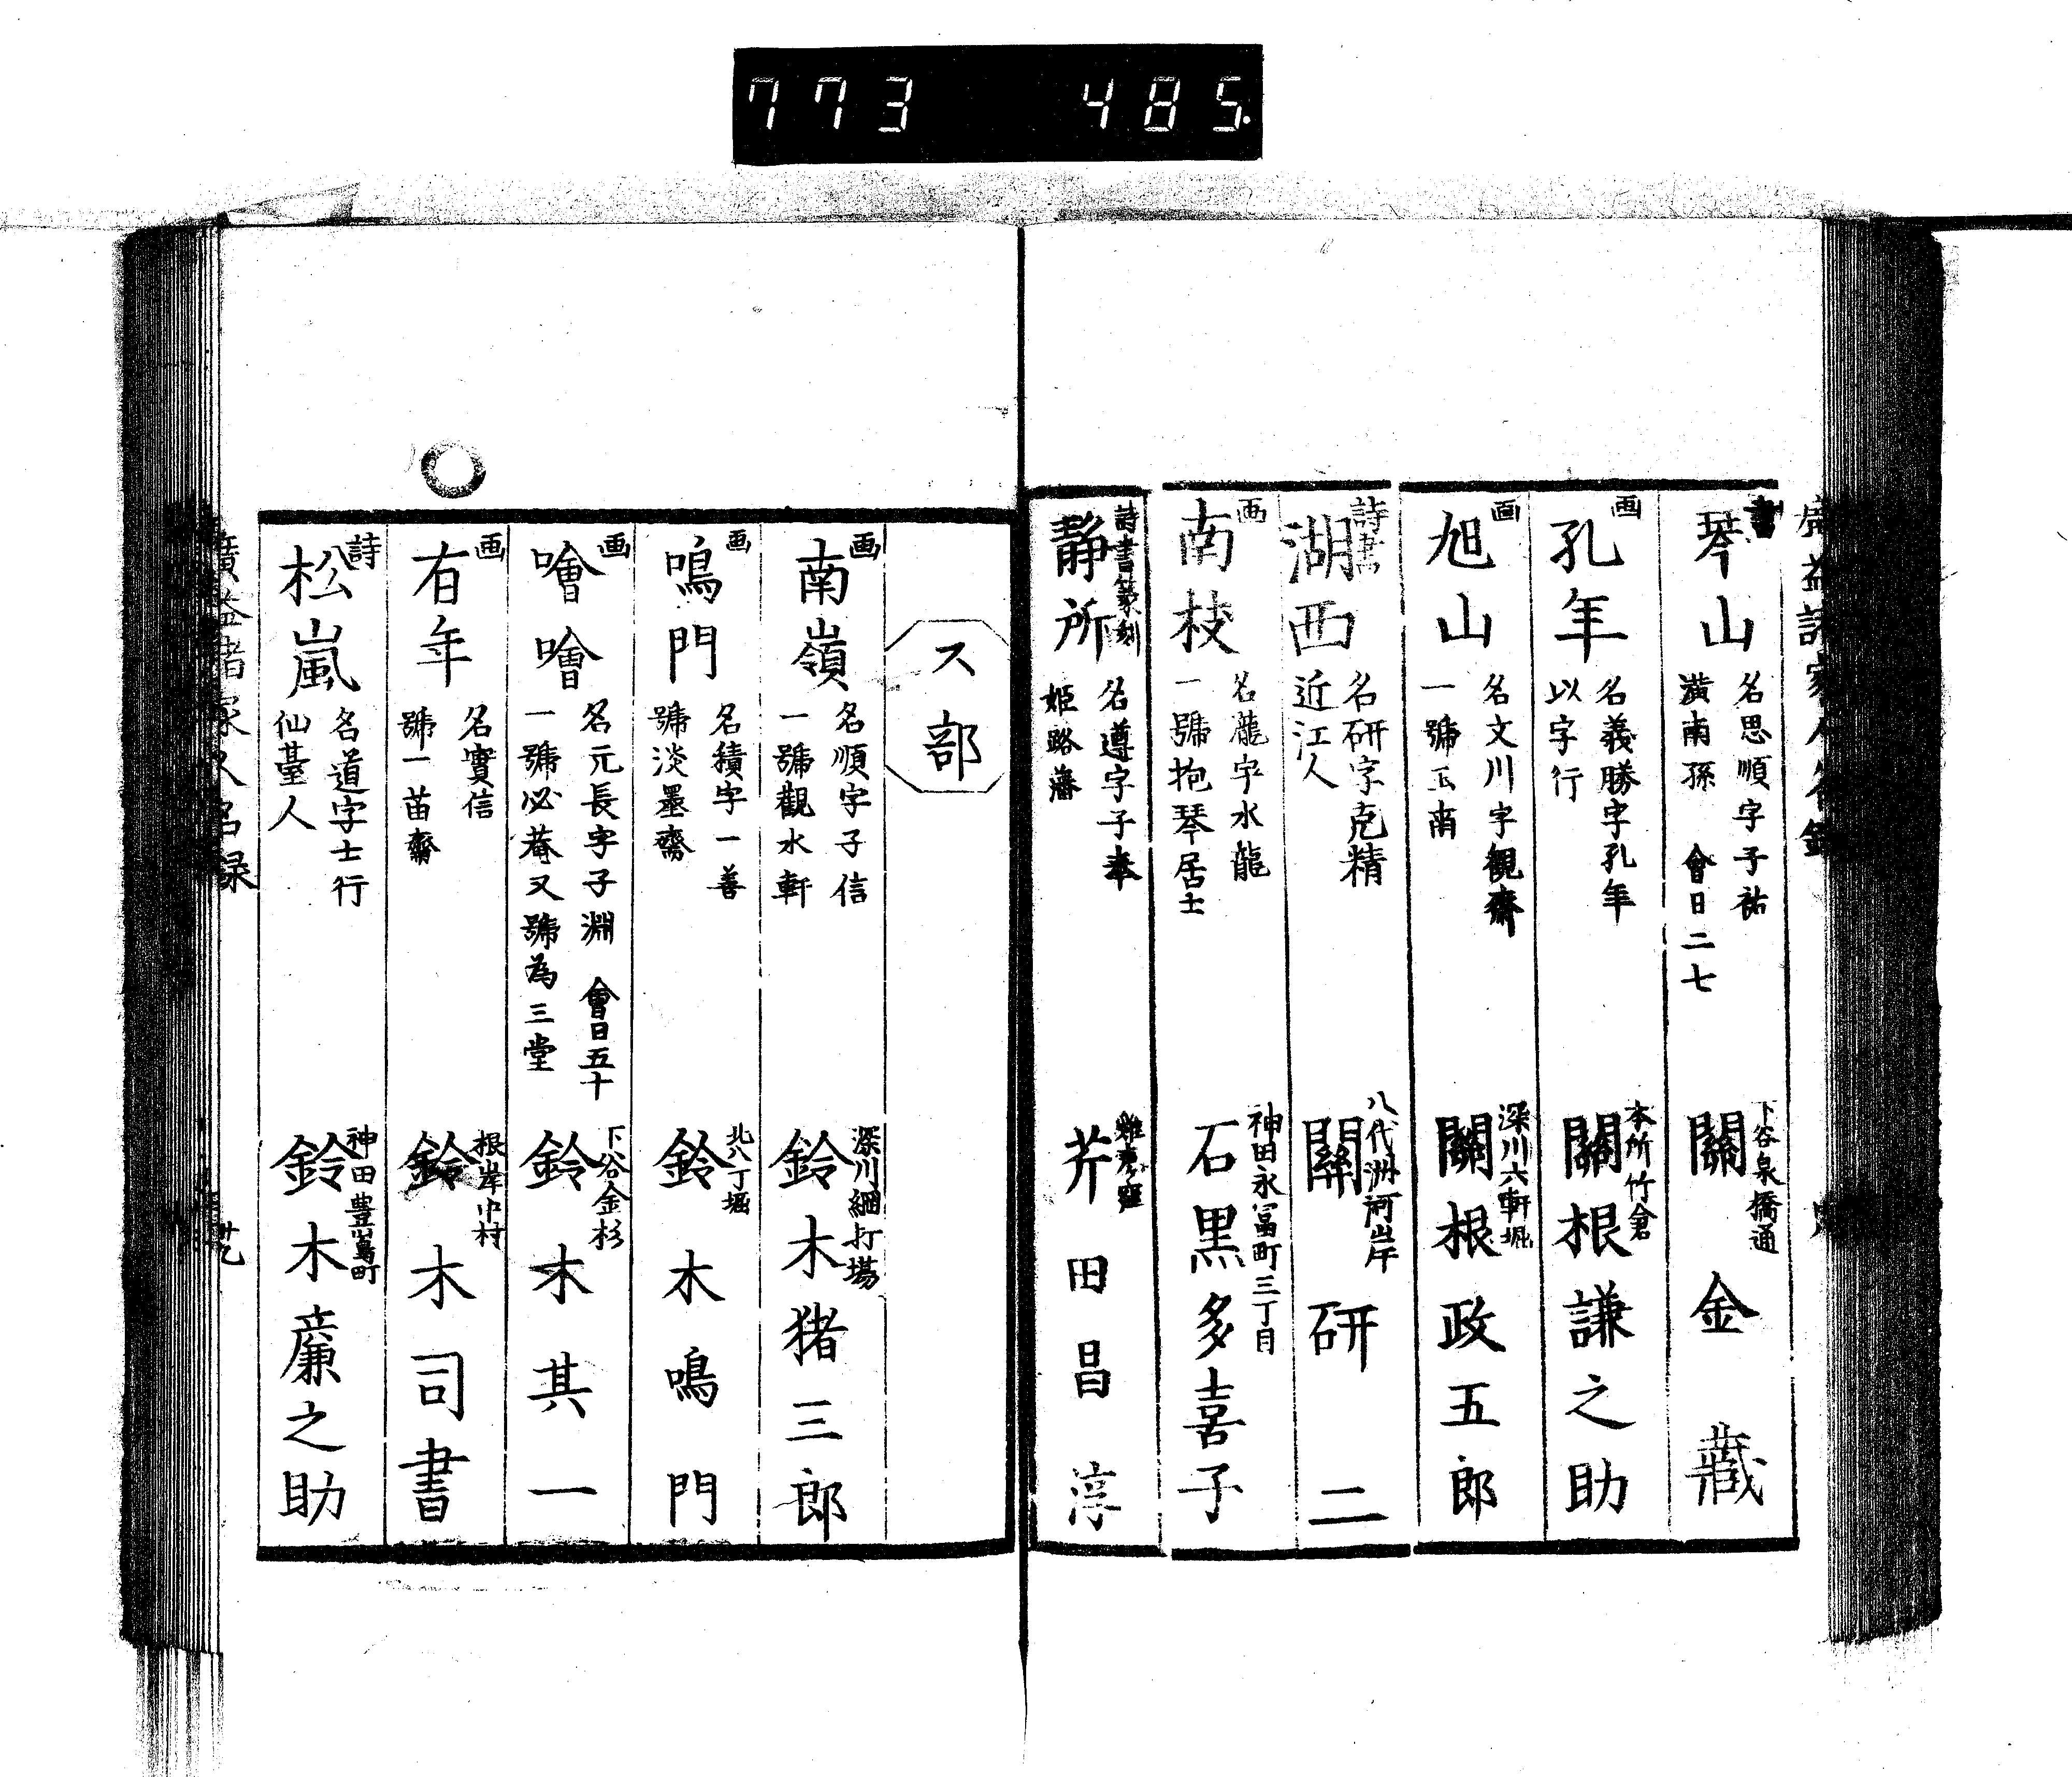 773 485.
廣益諸家人名録
書
琴山
名思順字子祐
潢南孫 會日二七
下谷泉橋通
關金藏
画
孔年
名義勝字孔年
以字行
本所竹倉
關根謙之助
画
旭山
名文川字觀齋
一號玉南
深川六軒堀
關根政五郎
詩書
湖西
名研字克精
近江人
八代洲河岸
關研二
画
南枝
名龍字水龍
一號抱琴居士
神田永冨町三丁目
石黒多喜子
詩書篆刻
静所
名遵字子奉
姫路藩
芥田昌淳
ス部
画
南嶺
名順字子信
一號觀水軒
深川網打場
鈴木猪三郎
画
鳴門
名績字一善
號淡墨齋
北八丁堀
鈴木鳴門
画
噲噲
名元長字子淵 會日五十
一號必菴又號為三堂
下谷金杉
鈴木其一
画
有年
名實信
號一苗齋
根岸中村
鈴木司書
詩
松嵐
名道字士行
仙臺人
神田豊嶌町
鈴木廉之助
廣益諸家人名録